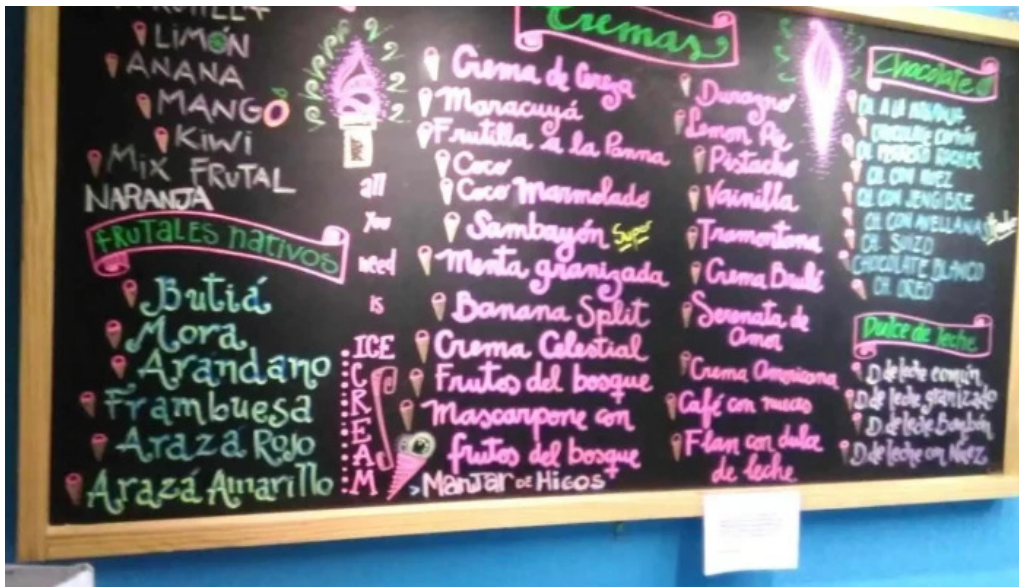 LIMÓN
ANANA
MANGO
KiWi
Mix FRUTAL
NARANJA
FRUTALES nativos
Butiá
Mora
Arándano
Frambuesa
Arazá Rojo
Arazá Amarillo
all
You
need
is
ICE
CREAM
Cremas
Crema de Cereza
Maracuyá
Frutilla a la Panna
Coco
Coco Marmolado
Sambayón Super
Menta granizada
Banana Split
Crema Celestial
Frutos del bosque
Mascarpone con
frutos del bosque
>Manjar de Higos
Durazno
Lemon Pie
Pistacho
Vainilla
Tramontana
Crema Brulé
Serenata de
Amor
Crema Americana
Café con nueces
Flan con dulce
de leche
Chocolate
CH. A LA NARANJA
CHOCOLATE COMÚN
CH. FERRERO ROCHER
CH. CON NUEZ
CH. CON JENGIBRE
CH. CON AVELLANAS
CH. SUIZO
CHOCOLATE BLANCO
CH OREO
Dulce de leche
D de leche común
D de leche granizado
D de leche Bombón
D de leche con Nuez